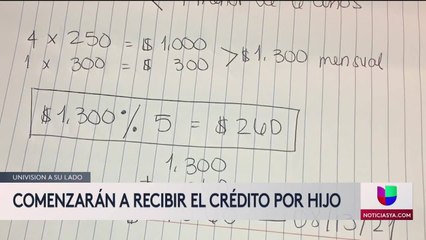 menor de 6 años
4 x 250 = $1,000
1 x 300 = $ 300
> $1,300 mensual
$1,300 % 5 = $260
1,300
UNIVISION A SU LADO
COMENZARÁN A RECIBIR EL CRÉDITO POR HIJO
NOTICIASYA.COM
08/13/21